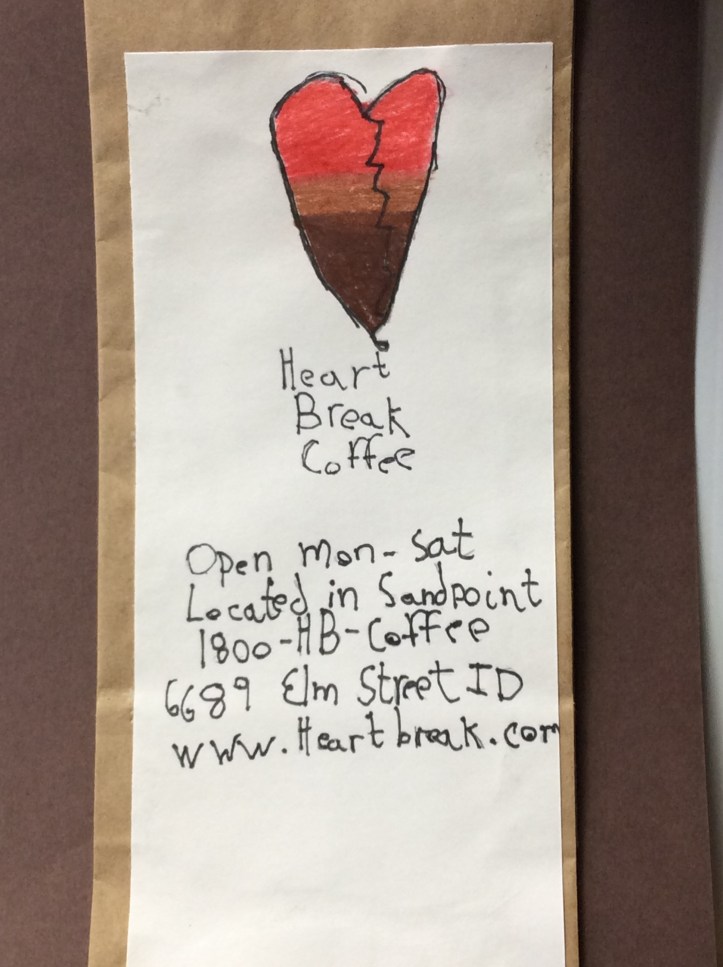 Heart
Break
Coffee
Open mon- Sat
Located in Sandpoint
1800-HB-Coffee
6689 Elm Street ID
www.Heartbreak.com